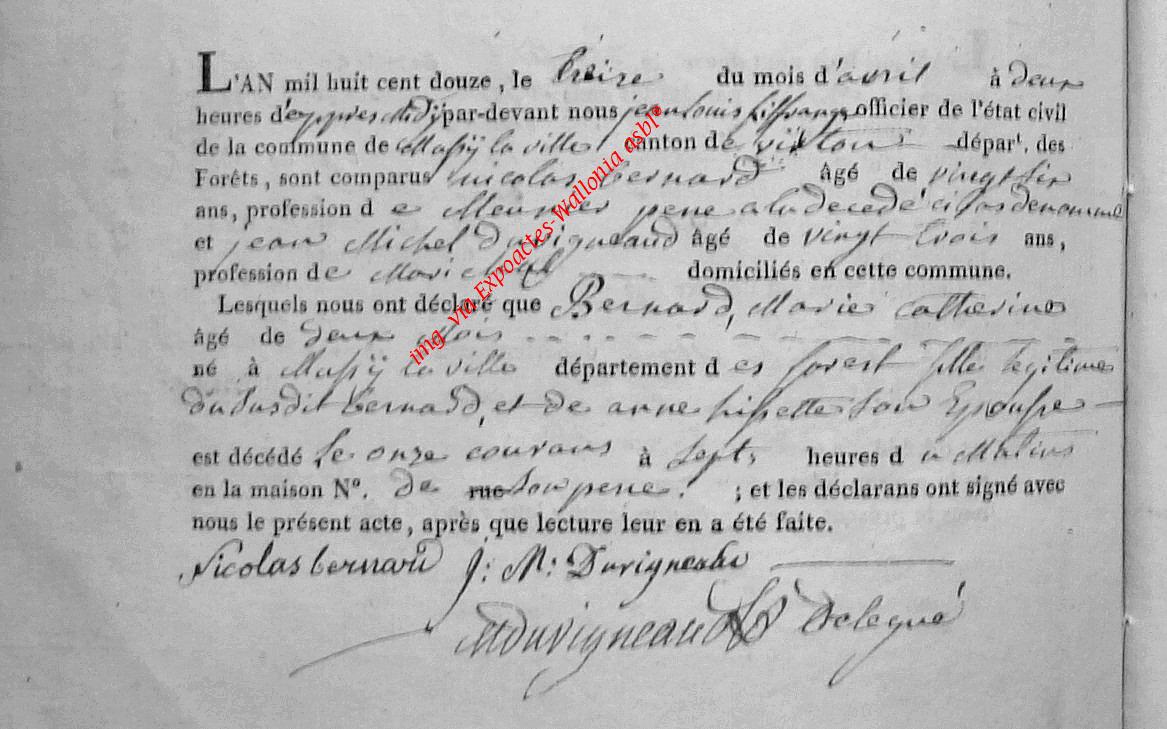 L'AN mil huit cent douze, le treize du mois d'avril à deux
heures d'eppres Midy par-devant nous jean louis officier de l'état civil
de la commune de Mussÿ la ville canton de virton dépar<sup>t</sup>. des
Forêts, sont comparus nicolas bernard âgé de vingt six
ans, profession de Meunier pere a la decedé ci bas denommé
et jean Michel duvigneaud âgé de vingt trois ans,
profession de Marichal domiciliés en cette commune.
Lesquels nous ont déclaré que Bernard, Marie Catherine
âgé de deux Mois
né à Mussÿ la ville département des forest fille legitime
du susdit bernard, et de anne son Epousse
est décédé le onze courans à sept heures du Matins
en la maison N°. de rue son pere. ; et les déclarans ont signé avec
nous le présent acte, après que lecture leur en a été faite.
Nicolas bernard J: M: Duvigneaud
Duvigneaud Delegué
img via Expoactes-Wallonia asbl°